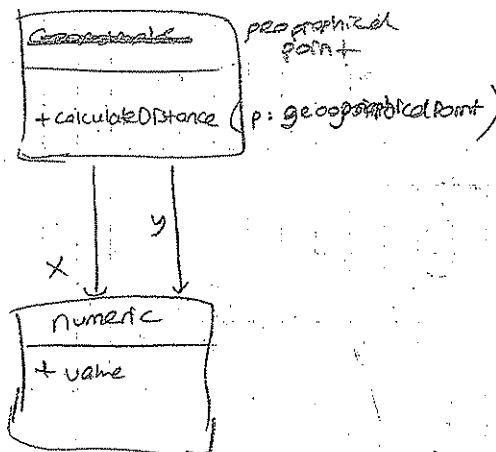 geographical
point
+ calculateDistance (p: geographicalPoint)
x
y
numeric
+ value